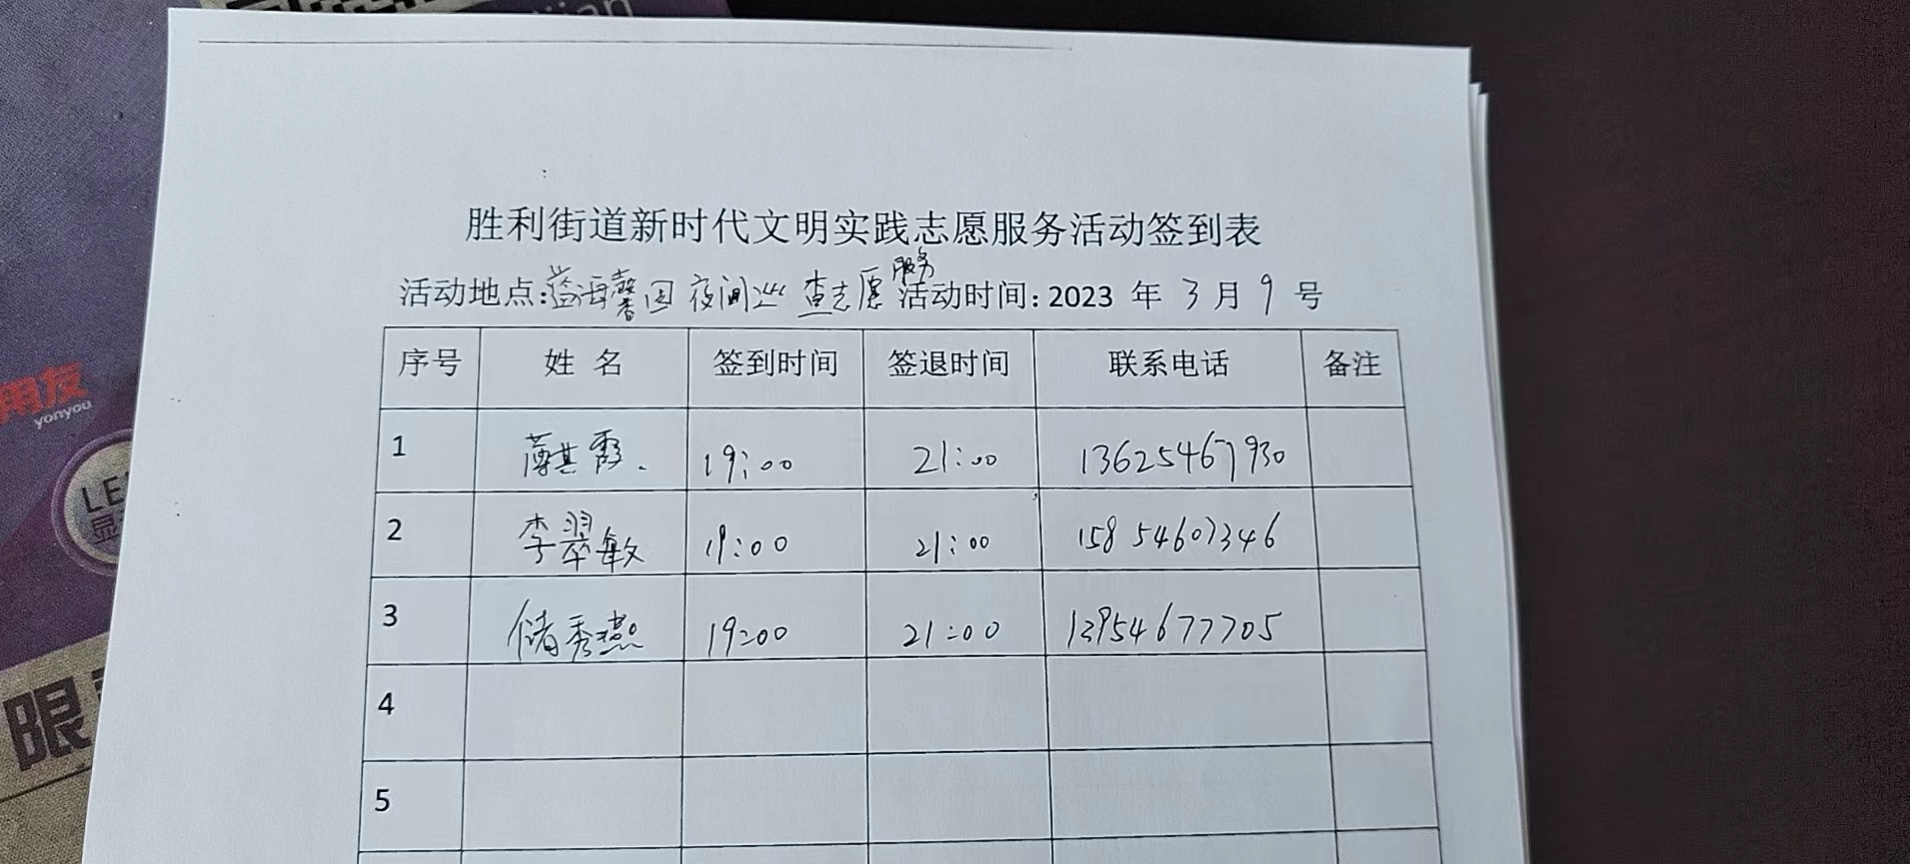 jian
胜利街道新时代文明实践志愿服务活动签到表
活动地点:益海馨园 夜间巡查志愿服务 活动时间: 2023 年 3 月 9 号
序号 姓 名 签到时间 签退时间 联系电话 备注
1 薄其霞. 19:00 21:00 13625467930
2 李翠敏 19:00 21:00 15854607346
3 储秀燕 19:00 21:00 13954677705
4
5
用友
yonyou
LE
显
眼